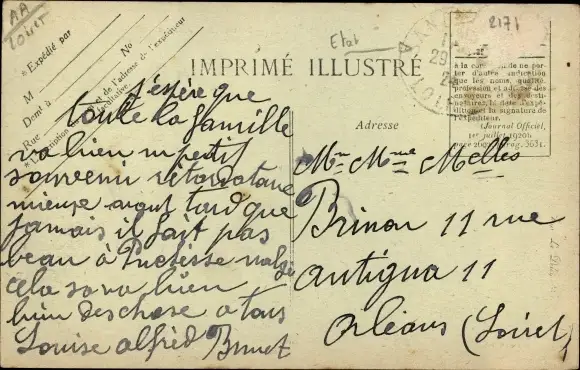 AA
Loiret
Etat
2171
Expédié par
M
Demt à
Rue
N°
de l'adresse de l'expéditeur
IMPRIMÉ ILLUSTRÉ
à la condition de ne por-
ter d'autre indication
que les nom, qualité,
profession et adresse des
envoyeurs et des desti-
nataires, la date d'expé-
dition et la signature de
l'expéditeur.
(Journal Officiel,
1er juillet 1920,
Adresse
j'espère que
toute la famille
va bien un petit
souvenir
mieux vaut tard que
jamais il fait pas
beau à malgré
cela sa va bien
bien des chose a tous
Louise alfred Brunet
Mr Mme Melles
Brinon 11 rue
antigna 11
Orléans (Loiret)